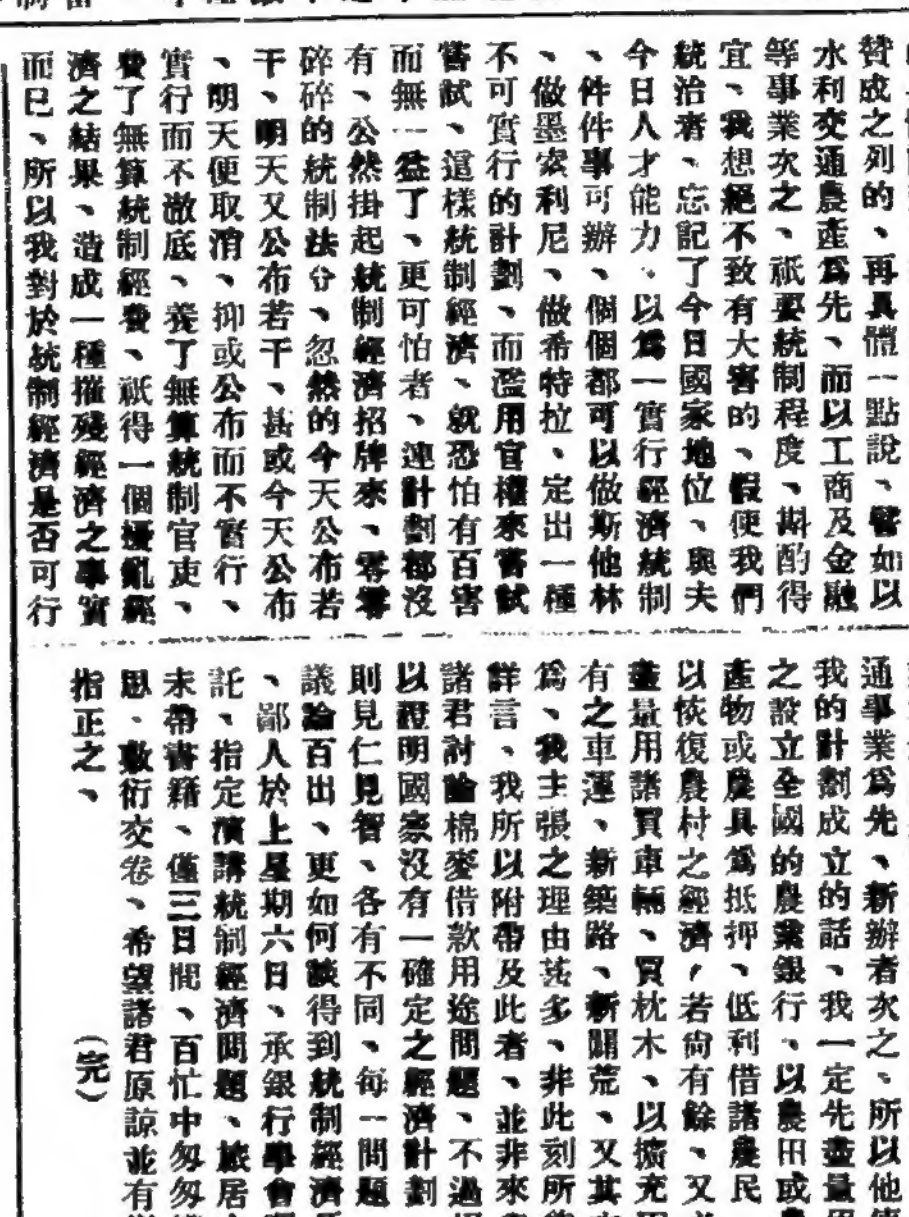 贊成之列的、再具體一點說、譬如以
水利交通農產爲先、而以工商及金融
等事業次之、祇要統制程度、斟酌得
宜、我想絕不致有大害的、假使我們
統治者、忘記了今日國家地位、與夫
今日人才能力、以爲一實行經濟統制
、件件事可辦、個個都可以做斯他林
、做墨索利尼、做希特拉、定出一種
不可實行的計劃、而濫用官權來嘗試
嘗試、這樣統制經濟、就恐怕有百害
而無一益了、更可怕者、連計劃都沒
有、公然掛起統制經濟招牌來、零零
碎碎的統制法令、忽然的今天公布若
干、明天又公布若干、甚或今天公布
、明天便取消、抑或公布而不實行、
實行而不澈底、養了無算統制官吏、
費了無算統制經費、祇得一個擾亂經
濟之結果、造成一種摧殘經濟之事實
而已、所以我對於統制經濟是否可行
通事業爲先、新辦者次之、所以他
我的計劃成立的話、我一定先盡量
之設立全國的農業銀行、以農田或
產物或農具爲抵押、低利借諸農民
以恢復農村之經濟，若尙有餘、又
盡量用諸買車輛、買枕木、以擴充
有之車運、新築路、新闢荒、又其
爲、我主張之理由甚多、非此刻所
詳言、我所以附帶及此者、並非來
諸君討論棉麥借款用途問題、不過
以證明國家沒有一確定之經濟計劃
則見仁見智、各有不同、每一問題
議論百出、更如何談得到統制經濟
、鄙人於上星期六日、承銀行學會
託、指定演講統制經濟問題、旅居
未帶書籍、僅三日間、百忙中匆匆
思．敷衍交卷、希望諸君原諒並有
指正之、
（完）